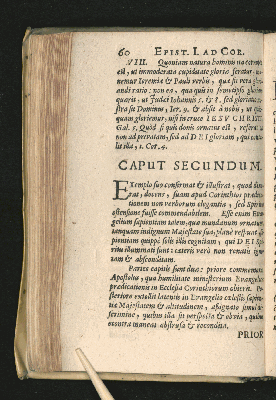 60 EPIST. I. AD COR.
VIII. Quoniam natura hominis ita
est, ut immoderata cupiditate gloriæ feratur,
Ieremiæ & Pauli verbis, quæ sit vera
andi ratio: non ea, qua quis in semetipso
quærit, ut Judæi Johannis 5. & 8. sed
stra sit Dominus, Ier. 9. & absit à nobis, ut
quam gloriemur, nisi in cruce IESU CHRISTI
Gal. 6. Quod si quis donis ornatus est,
non ad privatam, sed ad DEI gloriam,
lit illa, 1. Cor. 4.
CAPUT SECUNDUM.
Exemplo suo confirmat & illustrat, quod
rat, docens, suam apud Corinthios
tionem non verborum elegantia, sed Spiritus
ostensione fuisse commendabilem. Esse enim Evan-
gelium sapientiam talem, quæ mundanam ornatum
tanquam indignum Majestate sua, planè respuat:
pientiam quippe solis illis cognitam, qui DEI Spi-
ritu illuminati sunt: cæteris verò non renatis
tam & absconditam.
Partes capitis sunt duæ: priore commemorat
Apostolus, qua humilitate ministerium Evangelicæ
prædicationis in Ecclesia Corinthiorum obierit. Po-
steriore extollit latentis in Evangelio cœlestis sapien-
tiæ Majestatem & altitudinem, assignato simul
scrimine, quibus illa sit perspecta & obvia, quibus
contra maneat abstrusa & recondita.
PRIOR